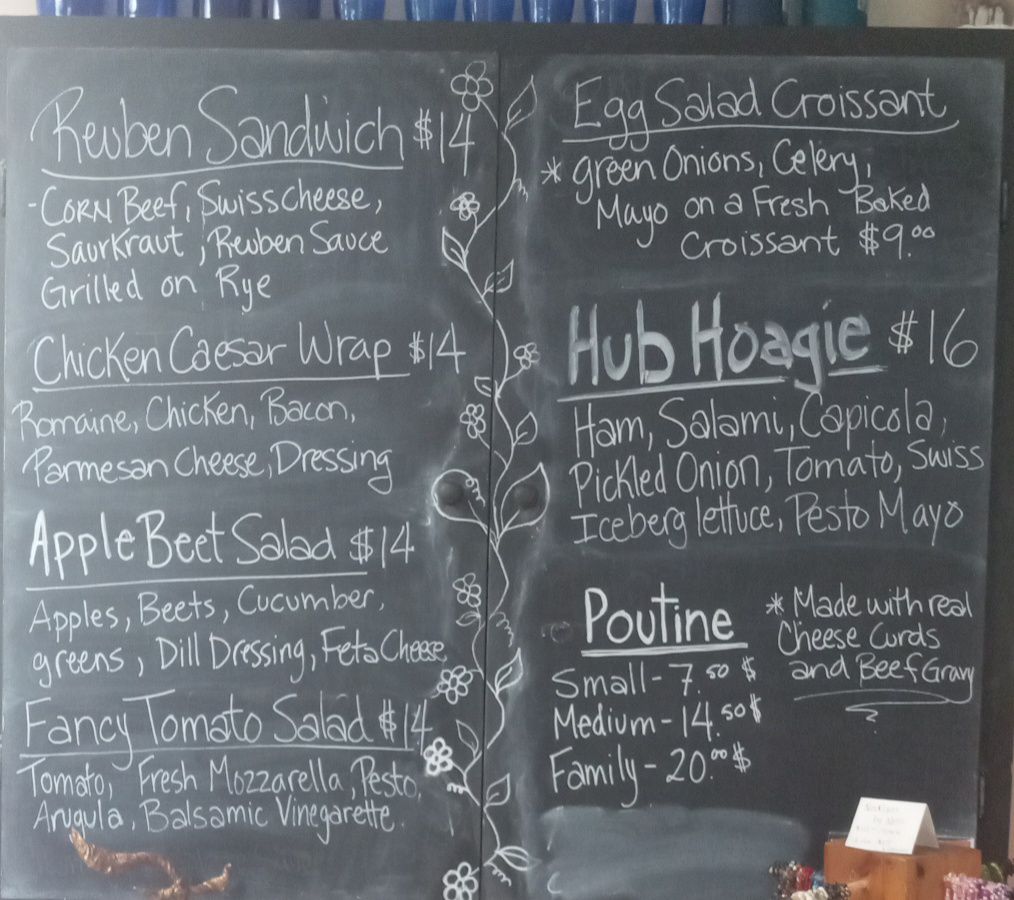 Reuben Sandwich $14
- Corn Beef, Swiss cheese,
Saurkraut, Reuben Sauce
Grilled on Rye
Chicken Caesar Wrap $14
Romaine, Chicken, Bacon,
Parmesan Cheese, Dressing
Apple Beet Salad $14
Apples, Beets, Cucumber,
greens, Dill Dressing, Feta Cheese
Fancy Tomato Salad $14
Tomato, Fresh Mozzarella, Pesto,
Arugula, Balsamic Vinegarette.
Egg Salad Croissant
* green Onions, Celery,
Mayo on a Fresh Baked
Croissant $9.00
Hub Hoagie $16
Ham, Salami, Capicola,
Pickled Onion, Tomato, Swiss
Iceberg lettuce, Pesto Mayo
Poutine
Small - 7.50 $
Medium - 14.50 $
Family - 20.00 $
* Made with real
Cheese Curds
and Beef Gravy